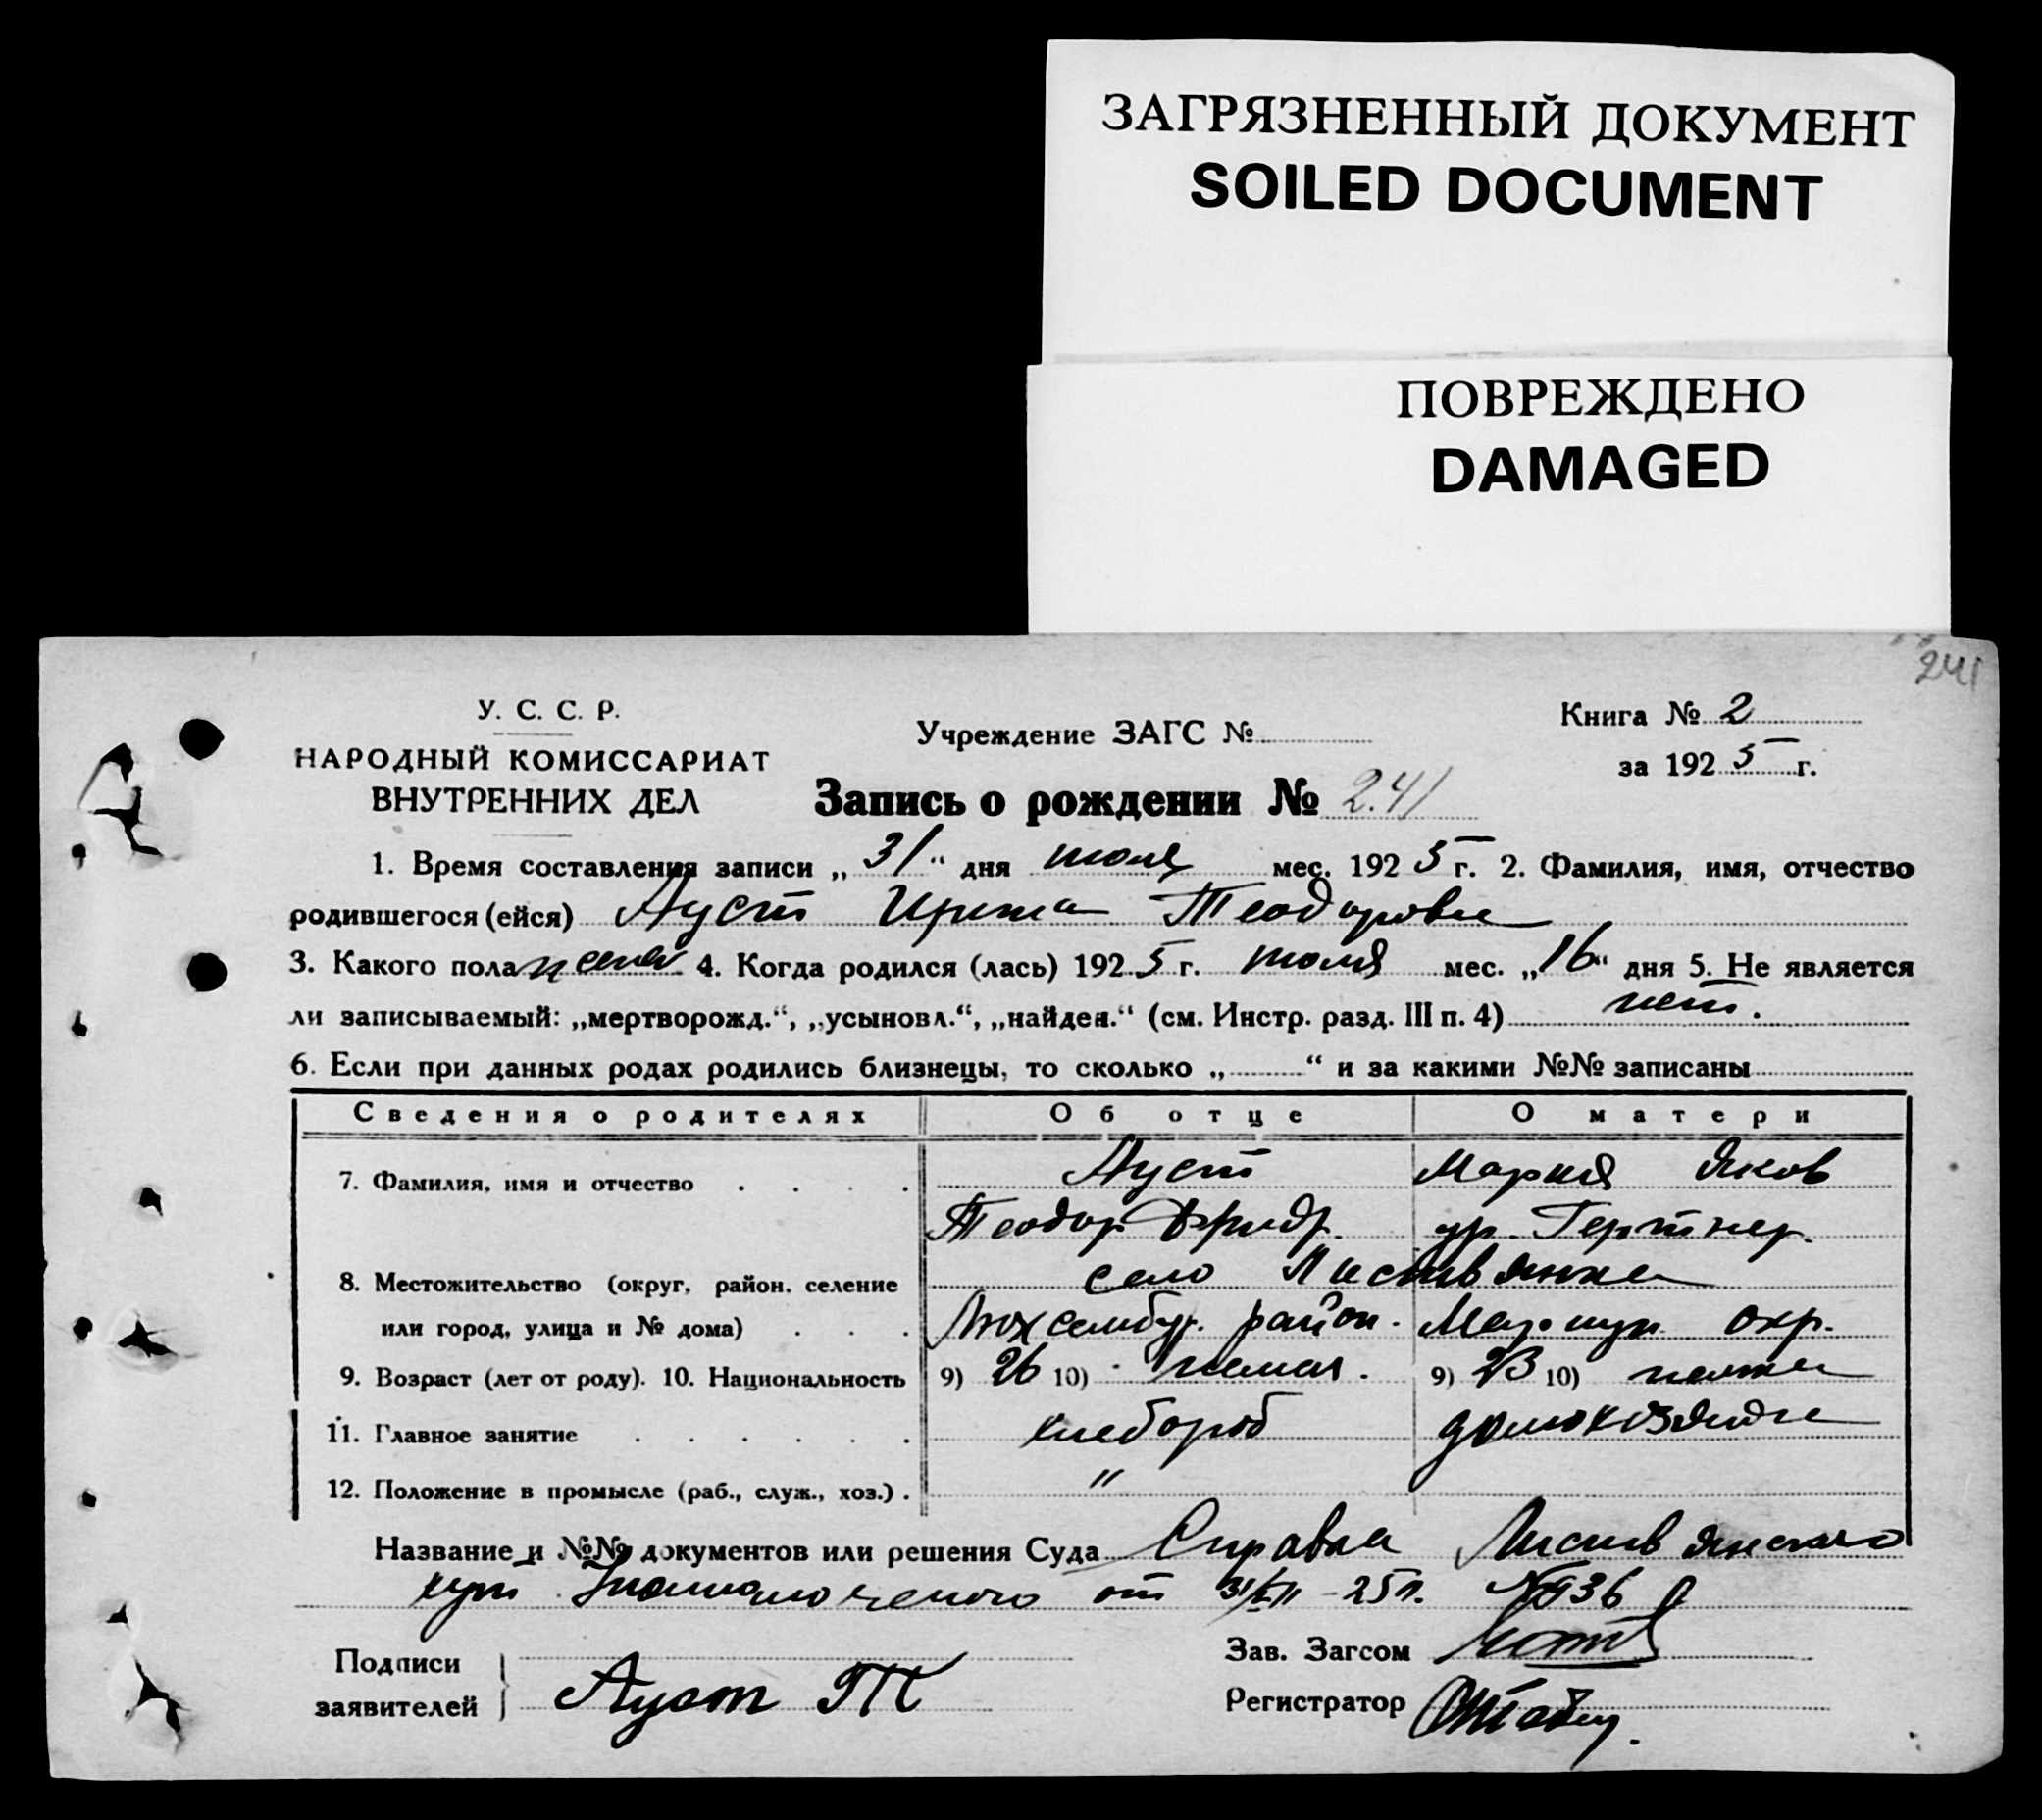 ЗАГРЯЗНЕННЫЙ ДОКУМЕНТ
SOILED DOCUMENT
ПОВРЕЖДЕНО
DAMAGED
241
У. С. С. Р.
НАРОДНЫЙ КОМИССАРИАТ
ВНУТРЕННИХ ДЕЛ
Учреждение ЗАГС №
Книга № 2
за 1925 г.
Запись о рождении № 241
1. Время составления записи „31“ дня июля мес. 1925 г. 2. Фамилия, имя, отчество
родившегося (ейся) Ауст Ирма Теодоровна
3. Какого пола женск 4. Когда родился (лась) 1925 г. июля мес. „16“ дня 5. Не является
ли записываемый: „мертворожд.“, „усыновл.“, „найден.“ (см. Инстр. разд. III п. 4) нет.
6. Если при данных родах родились близнецы, то сколько „ “ и за какими №№ записаны
Сведения о родителях Об отце О матери
7. Фамилия, имя и отчество Ауст Мария Яков
Теодор Фридр. ур. Гертнер.
8. Местожительство (округ, район, селение село
или город, улица и № дома) Люксембур. район. Мариуп окр.
9. Возраст (лет от роду). 10. Национальность 9) 26 10) немец. 9) 23 10) немка
11. Главное занятие хлебороб домохозяйка
12. Положение в промысле (раб., служ., хоз.) "
Название и №№ документов или решения Суда Справка
от 25 г.
Подписи
заявителей Ауст
Зав. Загсом
Регистратор